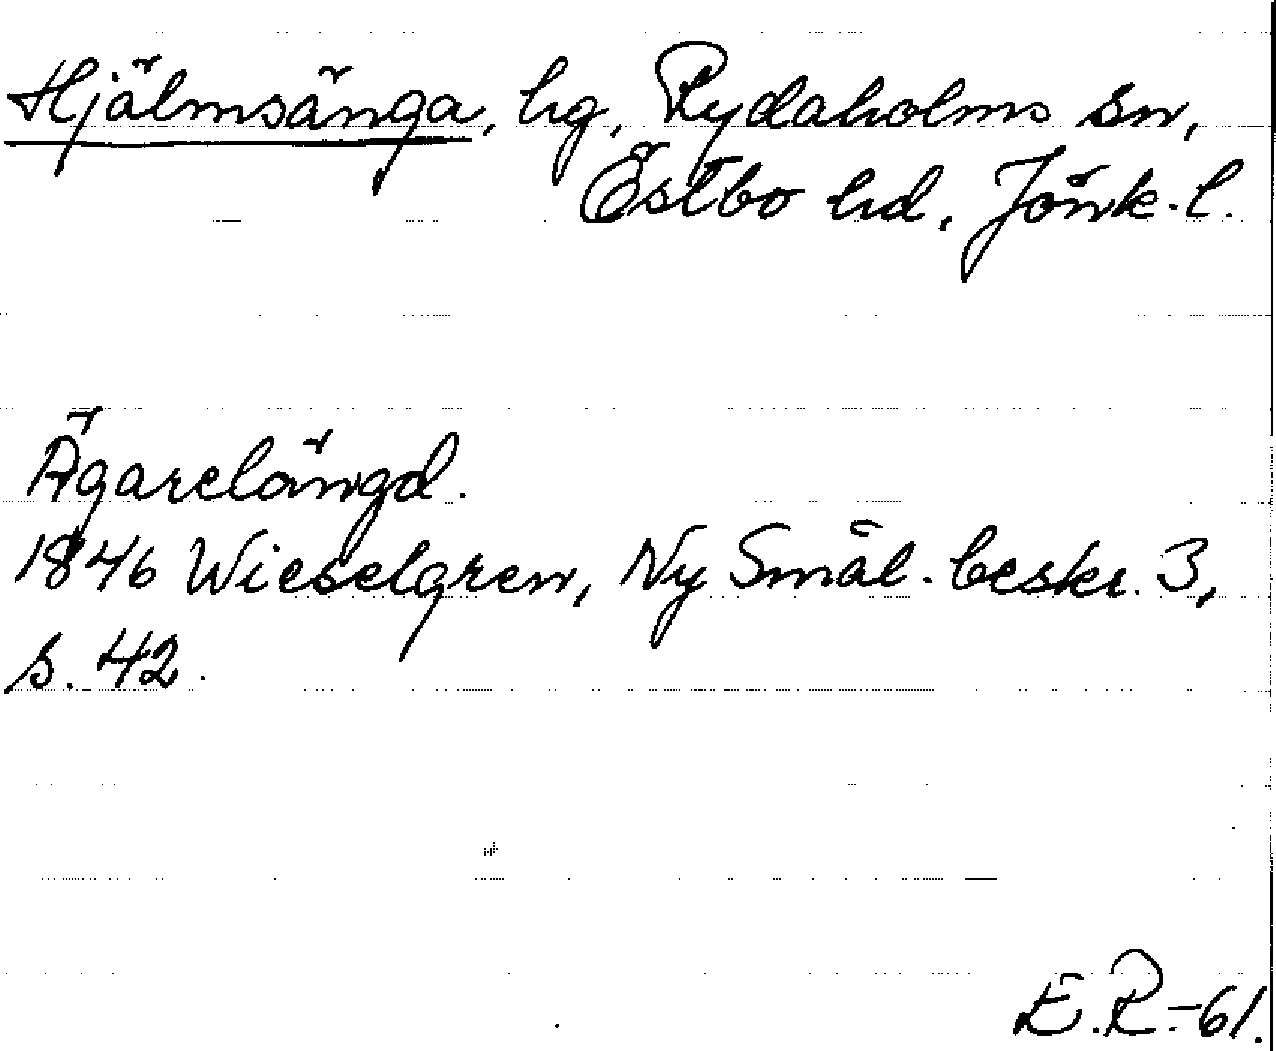 Hjälmsänga, hg, Rydaholms sn,
Östbo hd, Jönk. l.
Ägarelängd.
1846 Wieselgren, Ny Smål. beskr. 3,
s. 42.
E.R.-61.